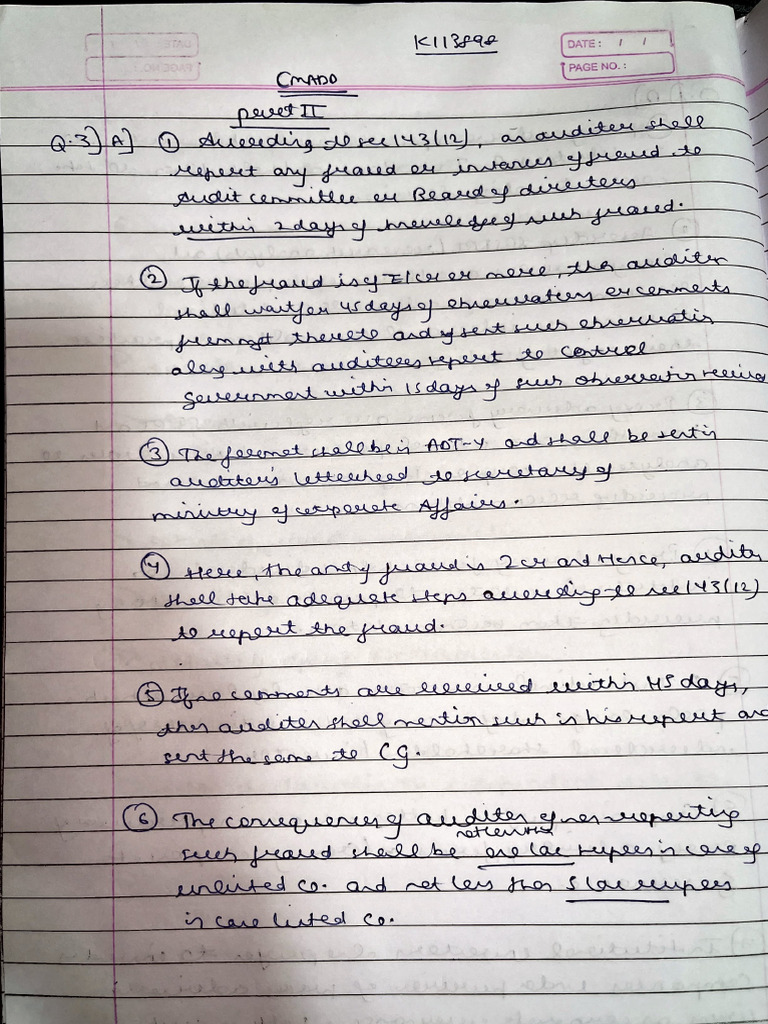 K113898
DATE: / /
PAGE NO.:
CMADD
part II
Q.3] A] ① According to sec 143(12), an auditor shall
report any fraud or instances of fraud to
Audit committee or Board of directors
within 2 days of knowledge of such fraud.
② If the fraud is of ₹1 cr or more, then auditor
shall wait for 45 days of observations or comments
from mgt thereto and sent such observation
along with auditors report to Central
Government within 15 days of such observation received
③ The format shall be in ADT-4 and shall be sent in
auditor's letterhead to secretary of
ministry of corporate Affairs.
④ Here, the amt of fraud is 2 cr and Hence, auditor
shall take adequate steps according to sec 143(12)
to report the fraud.
⑤ If no comments are received within 45 days,
then auditor shall mention such in his report and
sent the same to CG.
⑥ The consequences of auditor of non reporting
not less than
such fraud shall be one lac rupees in case of
unlisted co. and not less than 5 lac rupees
in case listed co.